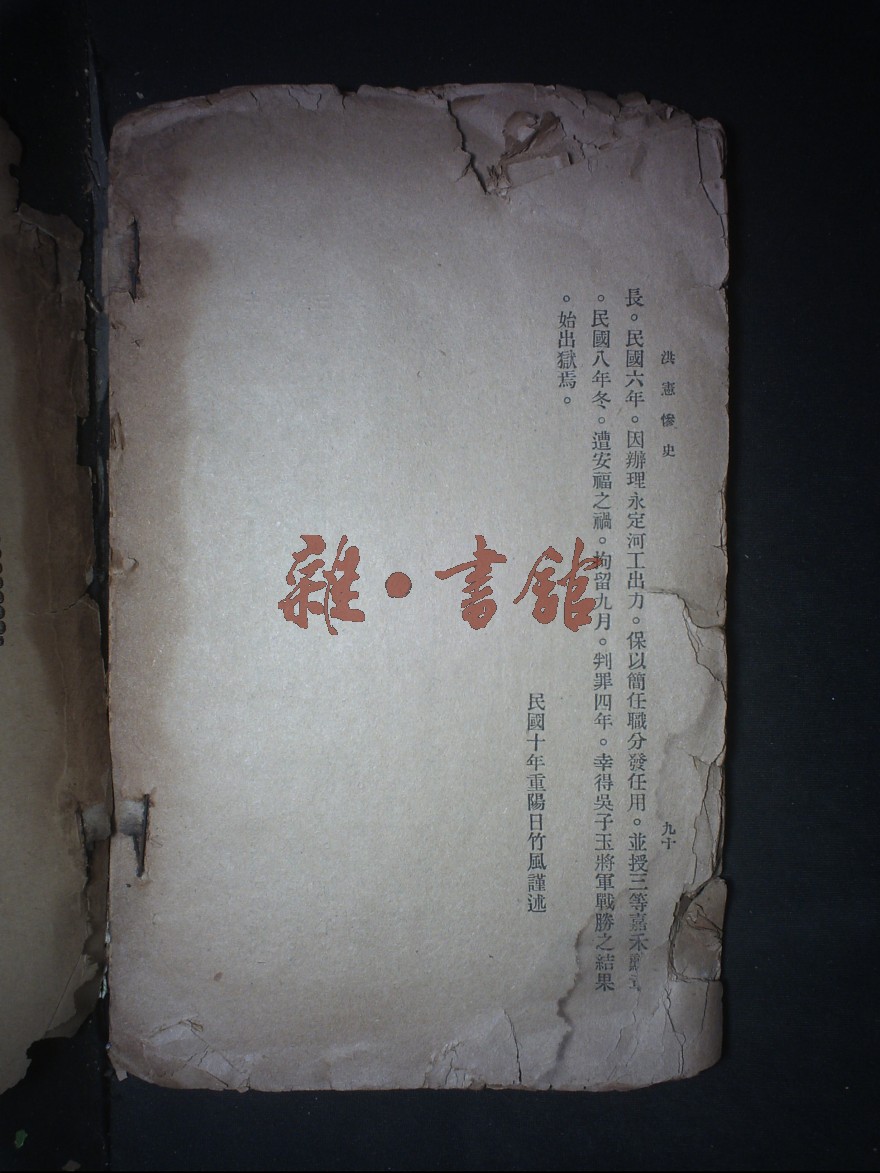 洪憲慘史
長。民國六年。因辦理永定河工出力。保以簡任職分發任用。並授三等嘉禾
。民國八年冬。遭安福之禍。拘留九月。判罪四年。幸得吳子玉將軍戰勝之結果
。始出獄焉。
民國十年重陽日竹風謹述
九十
雜·書館